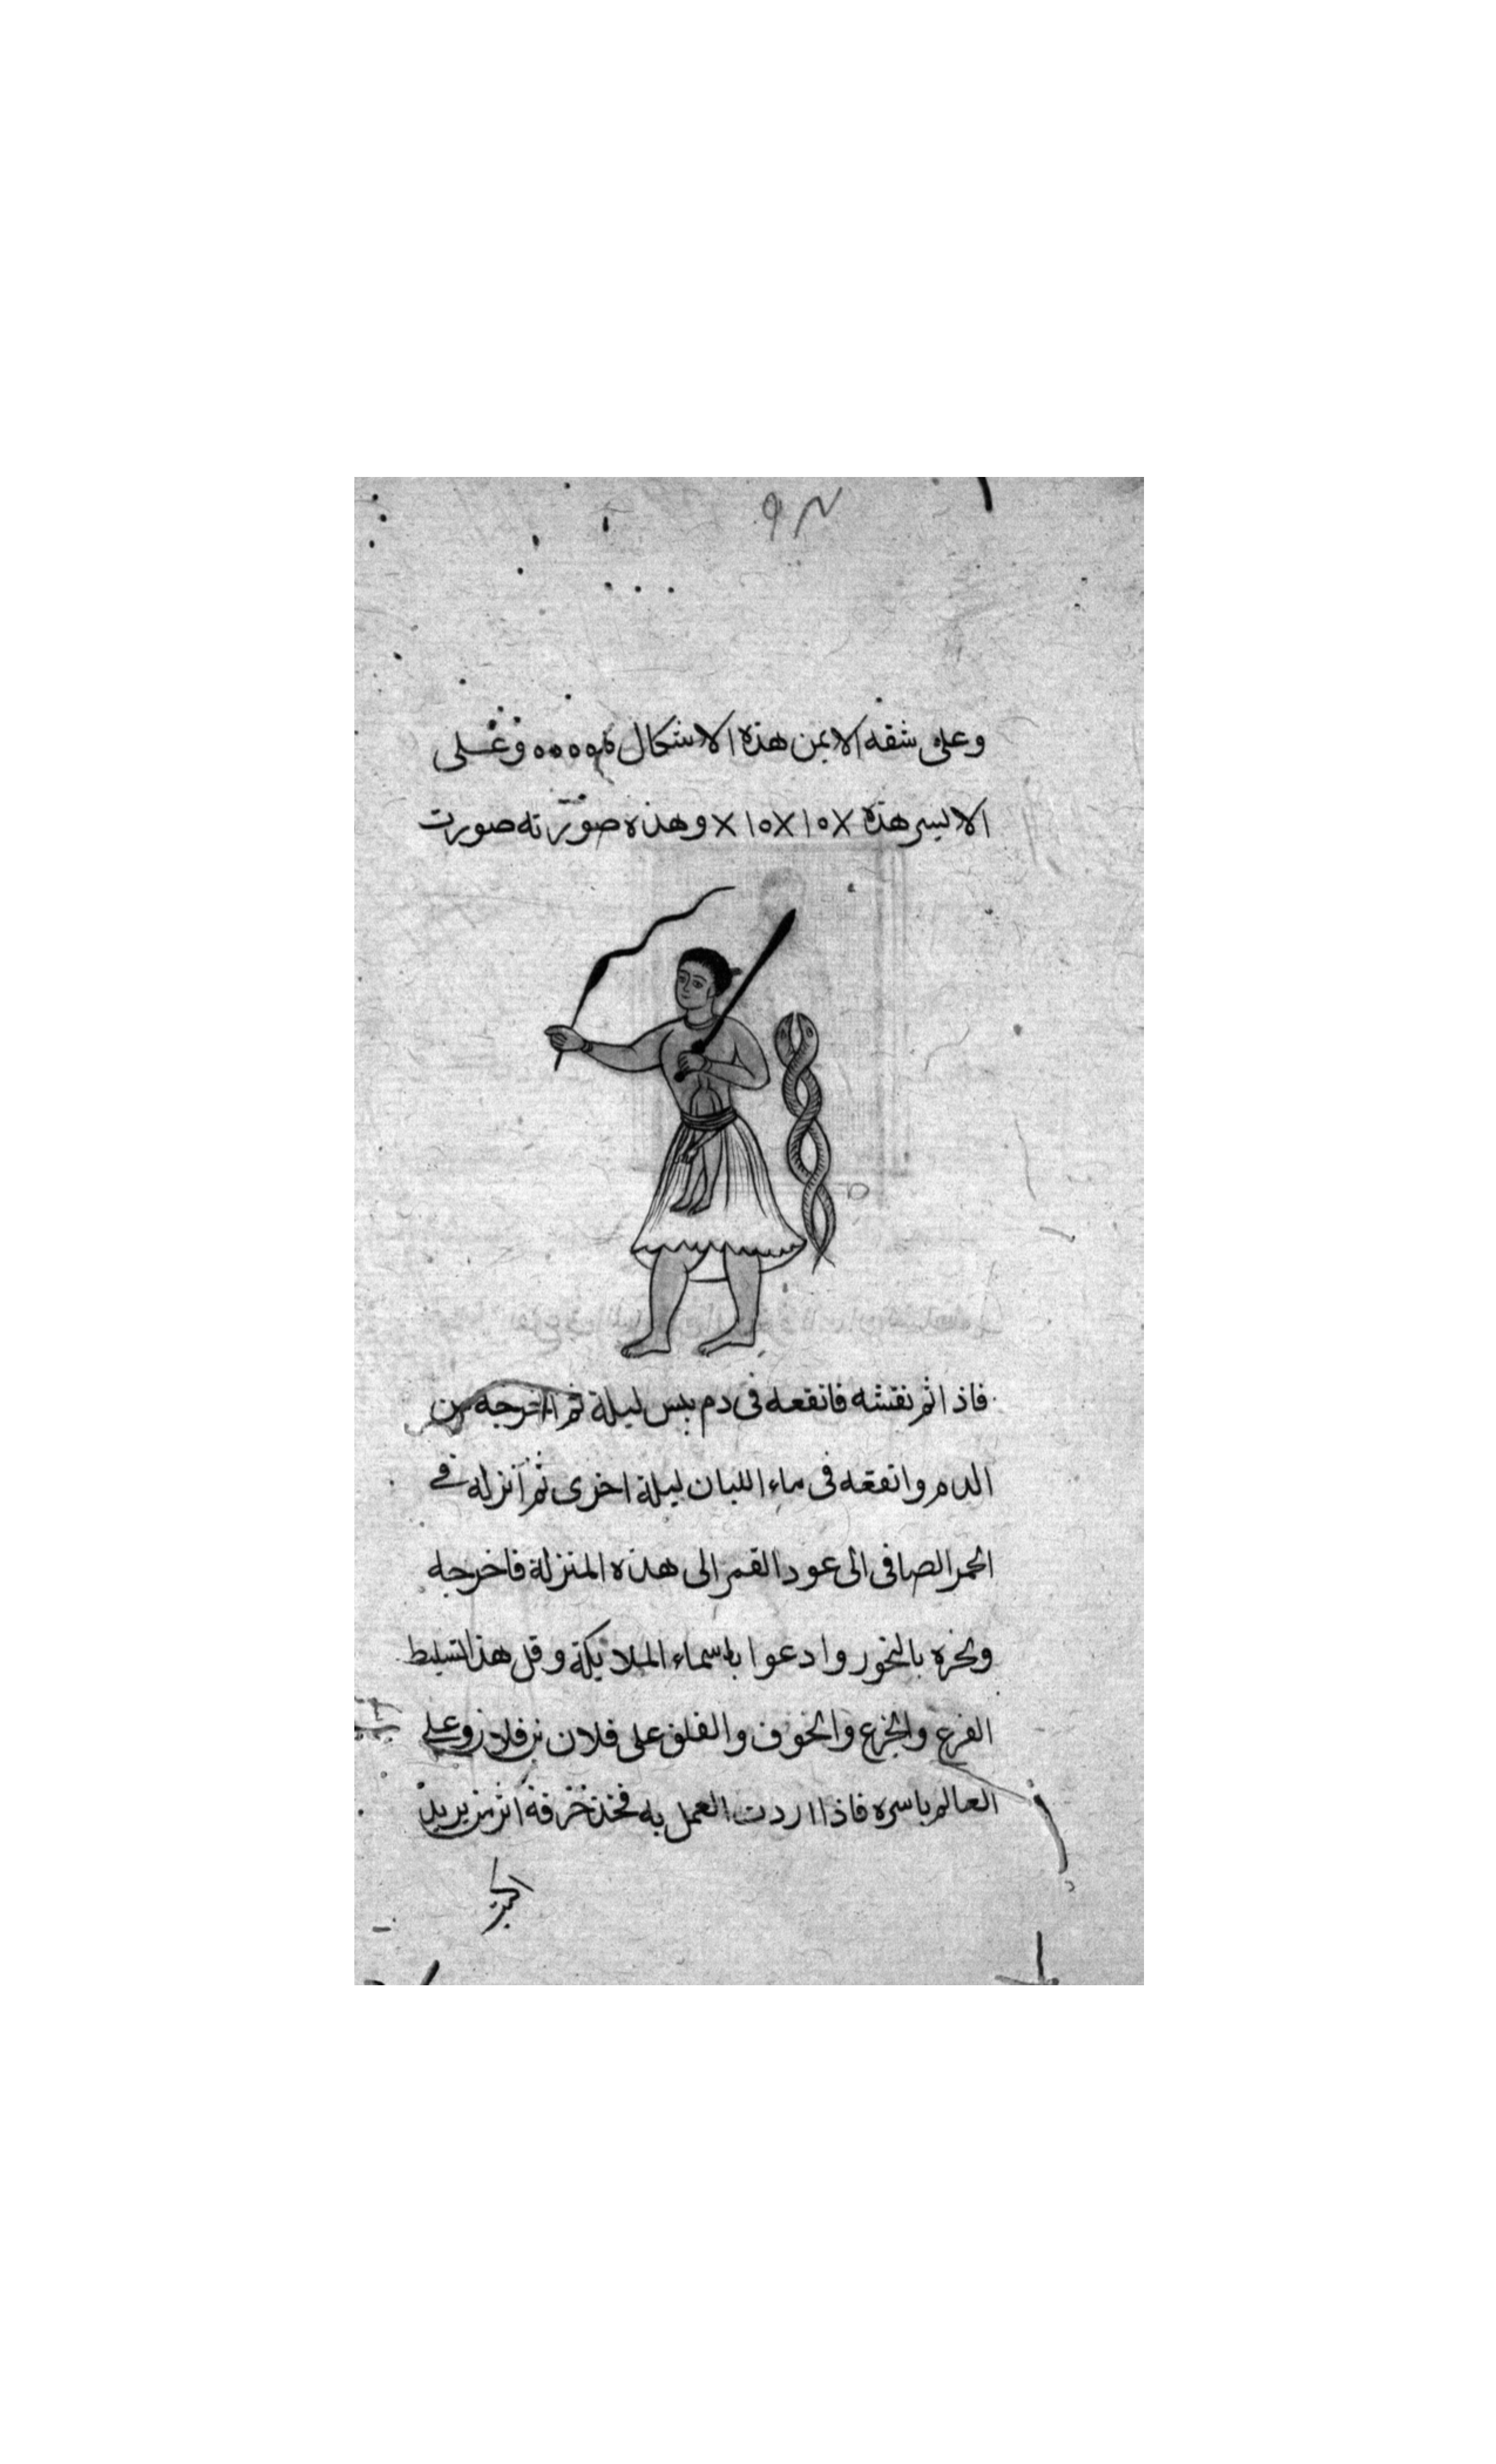 وعلى شقه الايمن هذه الاشكال ٥٥٥٥ وعلى
الايسر هذه X ا٥ X ا٥ X وهذه صورته صورت
فاذا تم نقشه فانقعه فى دم يبس ليلة ثم اخرجه من
الدم وانقعه فى ماء اللبان ليلة اخرى ثم انزله فى
الخمر الصافى الى عود القمر الى هذه المنزلة فاخرجه
وبخره بالبخور وادعوا باسماء الملائيكة وقل هذا لتسليط
الفزع والجزع والخوف والقلق على فلان بن فلان وعلى
العالم باسره فاذا اردت العمل به فخذ خرقة اثر من يريد